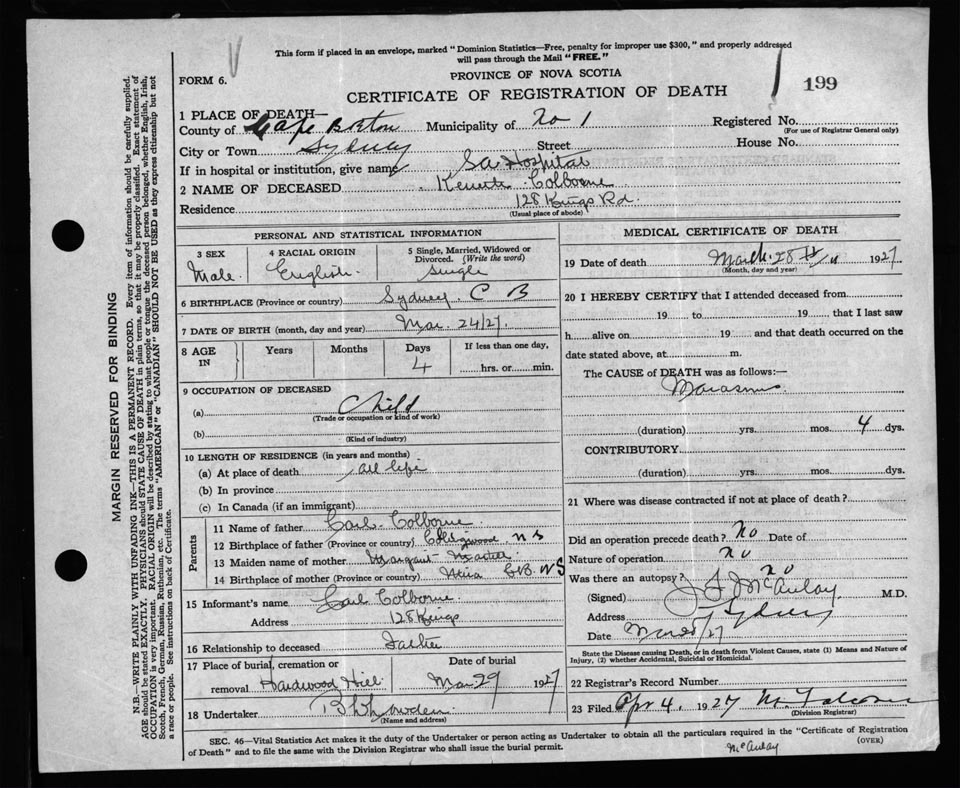 This form if placed in an envelope, marked "Dominion Statistics—Free, penalty for improper use $300," and properly addressed
will pass through the Mail "FREE."
FORM 6.
PROVINCE OF NOVA SCOTIA
CERTIFICATE OF REGISTRATION OF DEATH
199
1 PLACE OF DEATH—
County of Cape Breton Municipality of No 1 Registered No.
(For use of Registrar General only)
City or Town Sydney Street House No.
If in hospital or institution, give name Hospital
2 NAME OF DECEASED Colborne
Residence 128 Kings Rd.
(Usual place of abode)
PERSONAL AND STATISTICAL INFORMATION
3 SEX Male 4 RACIAL ORIGIN English 5 Single, Married, Widowed or Divorced. (Write the word) Single
6 BIRTHPLACE (Province or country) Sydney C B
7 DATE OF BIRTH (month, day and year) Mar. 24/27.
8 AGE IN Years Months Days 4 If less than one day, hrs. or min.
9 OCCUPATION OF DECEASED
(a) Child
(Trade or occupation or kind of work)
(b)
(Kind of industry)
10 LENGTH OF RESIDENCE (in years and months)
(a) At place of death all life
(b) In province
(c) In Canada (if an immigrant)
Parents
11 Name of father Carl Colborne
12 Birthplace of father (Province or country) N S
13 Maiden name of mother Margaret
14 Birthplace of mother (Province or country) Mira C B. N S
15 Informant's name Carl Colborne
Address 128 Kings
16 Relationship to deceased Father
17 Place of burial, cremation or removal Hardwood Hill Date of burial Mar 29 1927
18 Undertaker
(Name and address)
MEDICAL CERTIFICATE OF DEATH
19 Date of death March 28th 1927
(Month, day and year)
20 I HEREBY CERTIFY that I attended deceased from
19 to 19 , that I last saw
h alive on 19 and that death occurred on the
date stated above, at m.
The CAUSE of DEATH was as follows:—
Marasmus
(duration) yrs. mos. 4 dys.
CONTRIBUTORY
(duration) yrs. mos. dys.
21 Where was disease contracted if not at place of death?
Did an operation precede death? No Date of
Nature of operation no
Was there an autopsy? no
(Signed) McAulay M.D.
Address Sydney
Date Mar 28/27
State the Disease causing Death, or in death from Violent Causes, state (1) Means and Nature of
Injury, (2) whether Accidental, Suicidal or Homicidal.
22 Registrar's Record Number
23 Filed Apr 4, 1927
(Division Registrar)
SEC. 46—Vital Statistics Act makes it the duty of the Undertaker or person acting as Undertaker to obtain all the particulars required in the "Certificate of Registration
of Death" and to file the same with the Division Registrar who shall issue the burial permit.
(OVER)
McAulay
MARGIN RESERVED FOR BINDING
N.B.—WRITE PLAINLY WITH UNFADING INK—THIS IS A PERMANENT RECORD. Every item of information should be carefully supplied.
AGE should be stated EXACTLY. PHYSICIANS should STATE CAUSE OF DEATH in plain terms, so that it may be properly classified. Exact statement of
OCCUPATION is very important. RACIAL ORIGIN will be described by stating to what people or tongue the deceased person belonged, whether English, Irish,
Scotch, French, German, Russian, Ruthenian, etc. The terms "AMERICAN" or "CANADIAN" SHOULD NOT BE USED as they express citizenship but not
a race or people. See instructions on back of Certificate.